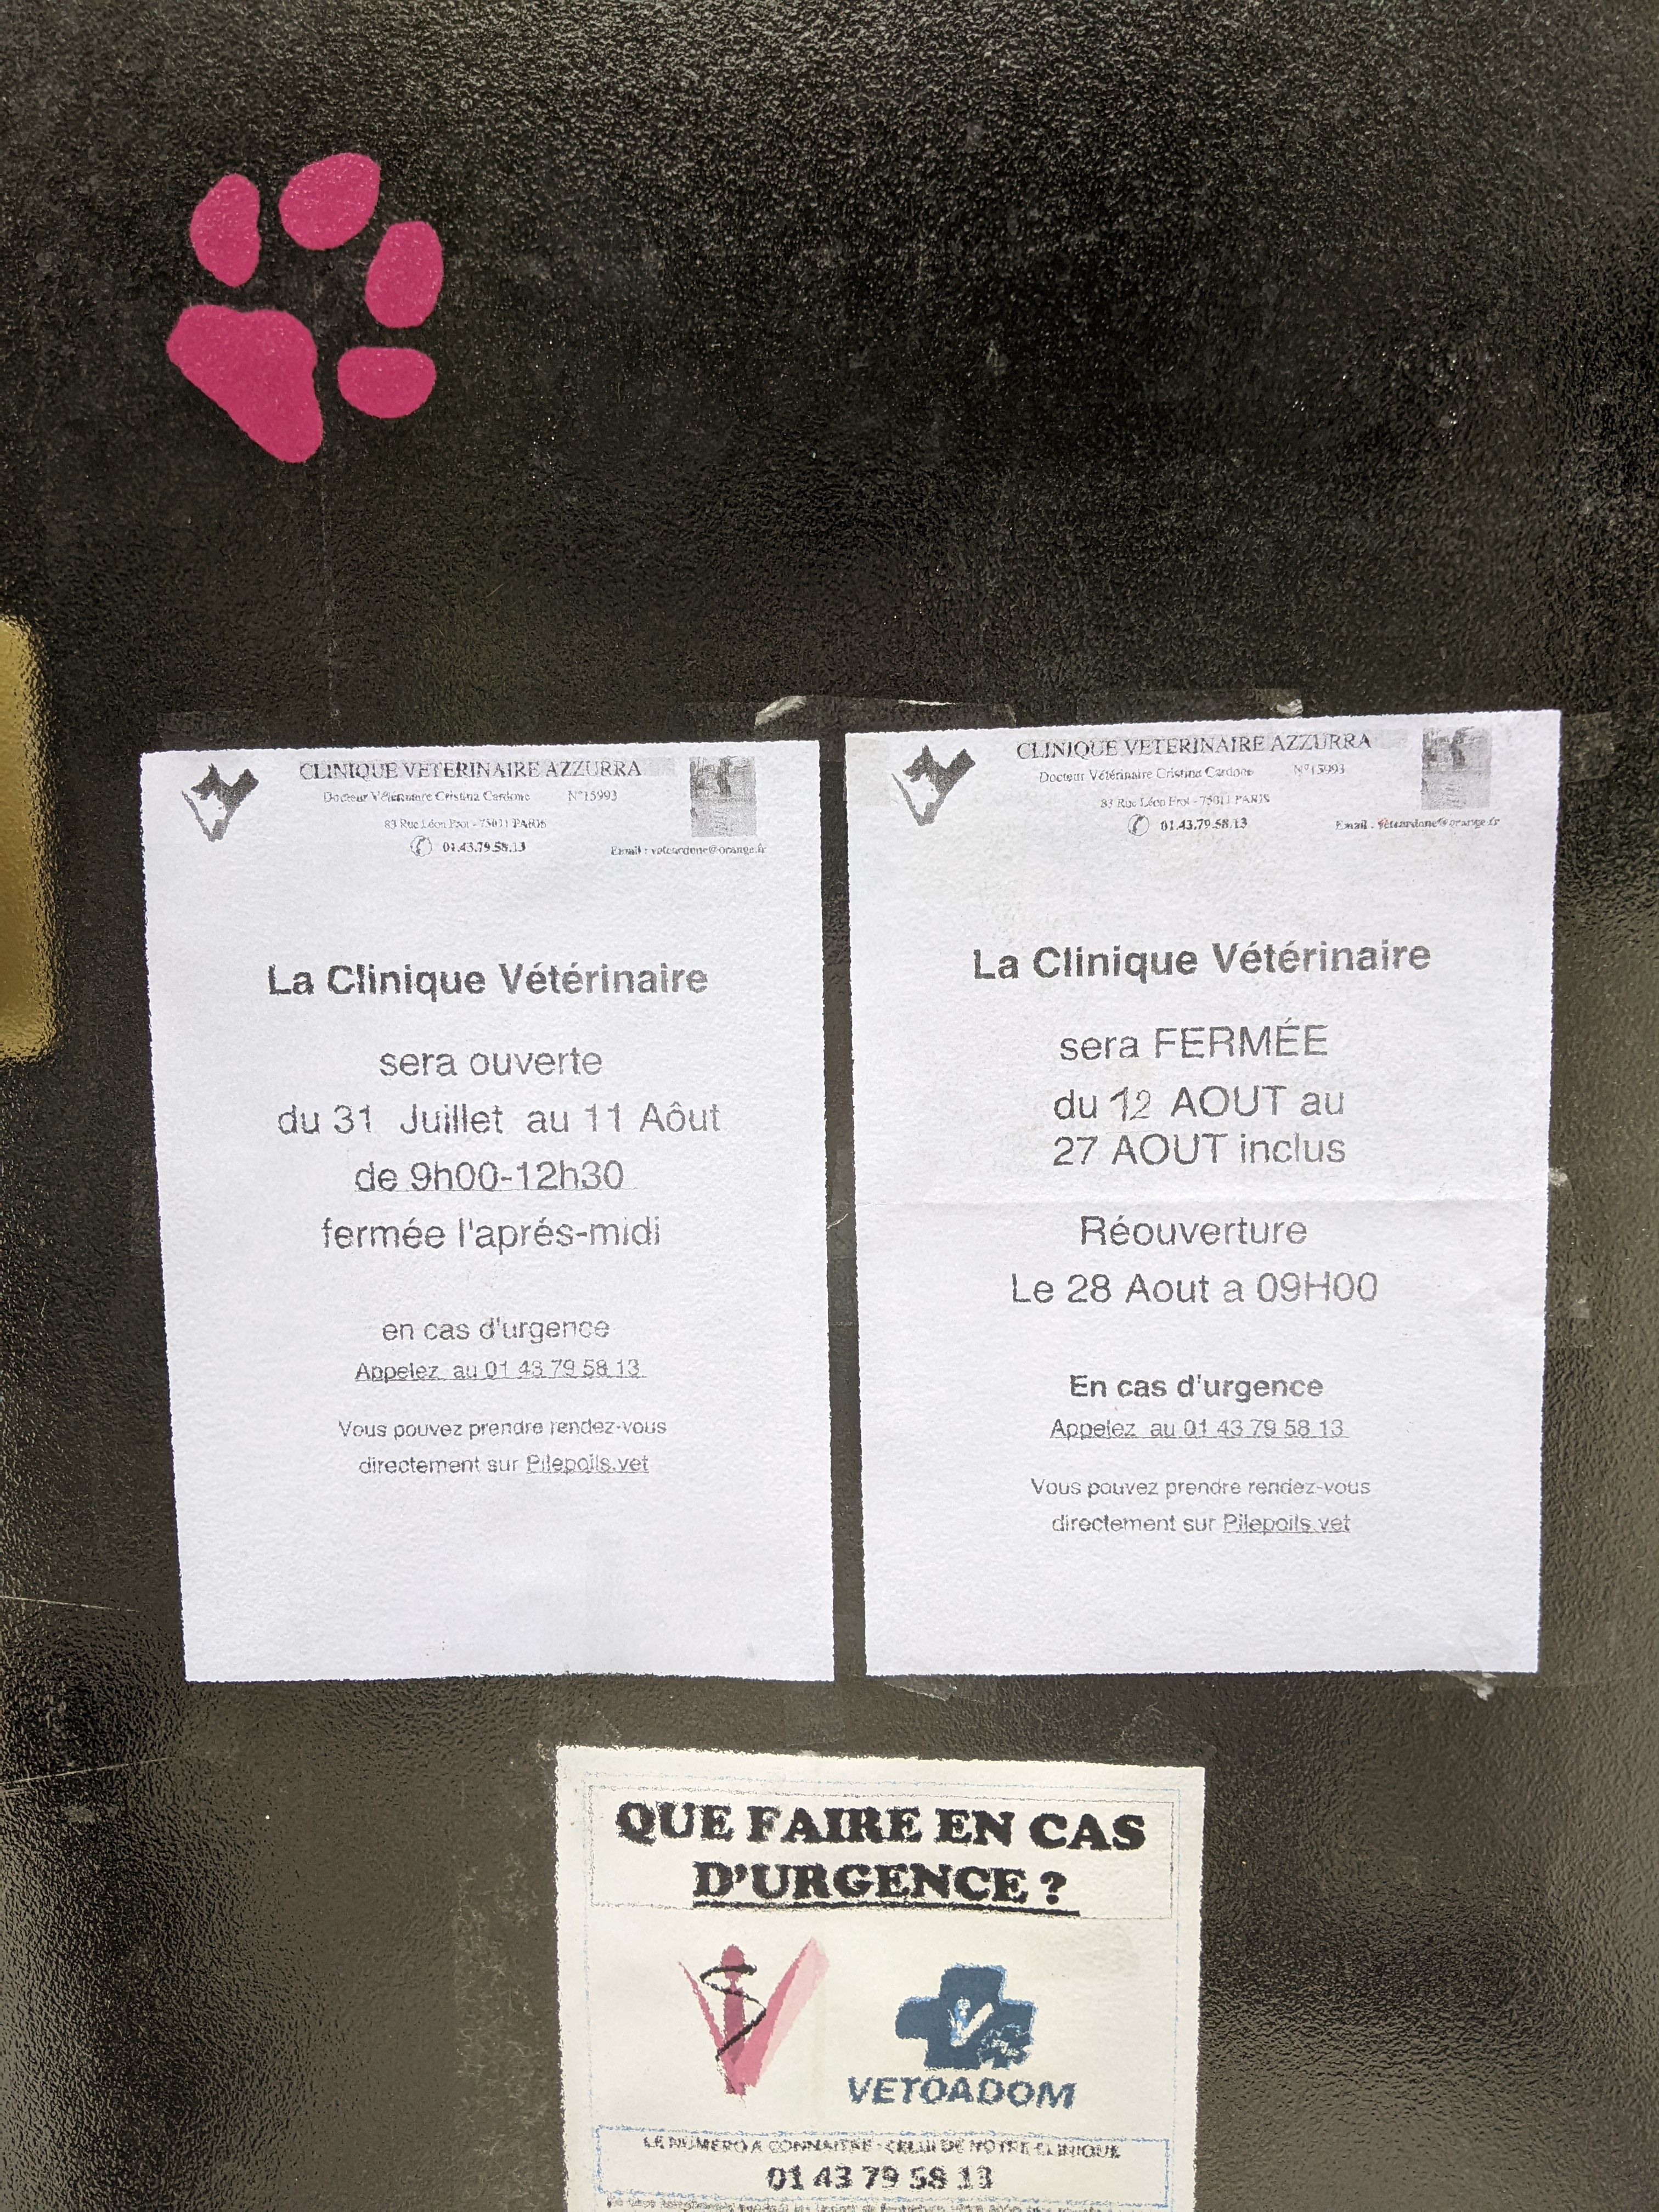 CLINIQUE VETERINAIRE AZZURRA
Docteur Vétérinaire Cristina Cardone N°15993
83 Rue Léon Frot - 75011 PARIS
01.43.79.58.13
Email : vetcardone@orange.fr
La Clinique Vétérinaire
sera ouverte
du 31 Juillet au 11 Aôut
de 9h00-12h30
fermée l'aprés-midi
en cas d'urgence
Appelez au 01 43 79 58 13
Vous pouvez prendre rendez-vous
directement sur Pilepoils.vet
CLINIQUE VETERINAIRE AZZURRA
Docteur Vétérinaire Cristina Cardone N°15993
83 Rue Léon Frot - 75011 PARIS
01.43.79.58.13
Email : vetcardone@orange.fr
La Clinique Vétérinaire
sera FERMÉE
du 12 AOUT au
27 AOUT inclus
Réouverture
Le 28 Aout a 09H00
En cas d'urgence
Appelez au 01 43 79 58 13
Vous pouvez prendre rendez-vous
directement sur Pilepoils.vet
QUE FAIRE EN CAS
D'URGENCE ?
VETOADOM
LE NUMERO A CONNAITRE : CELUI DE NOTRE CLINIQUE
01 43 79 58 13